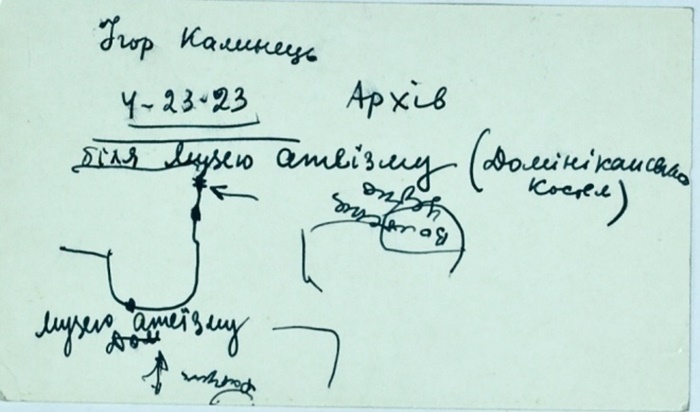 Ігор Калинець
4-23-23 Архів
біля музею атеїзму (Домініканський
костел)
музею атеїзму
Дом